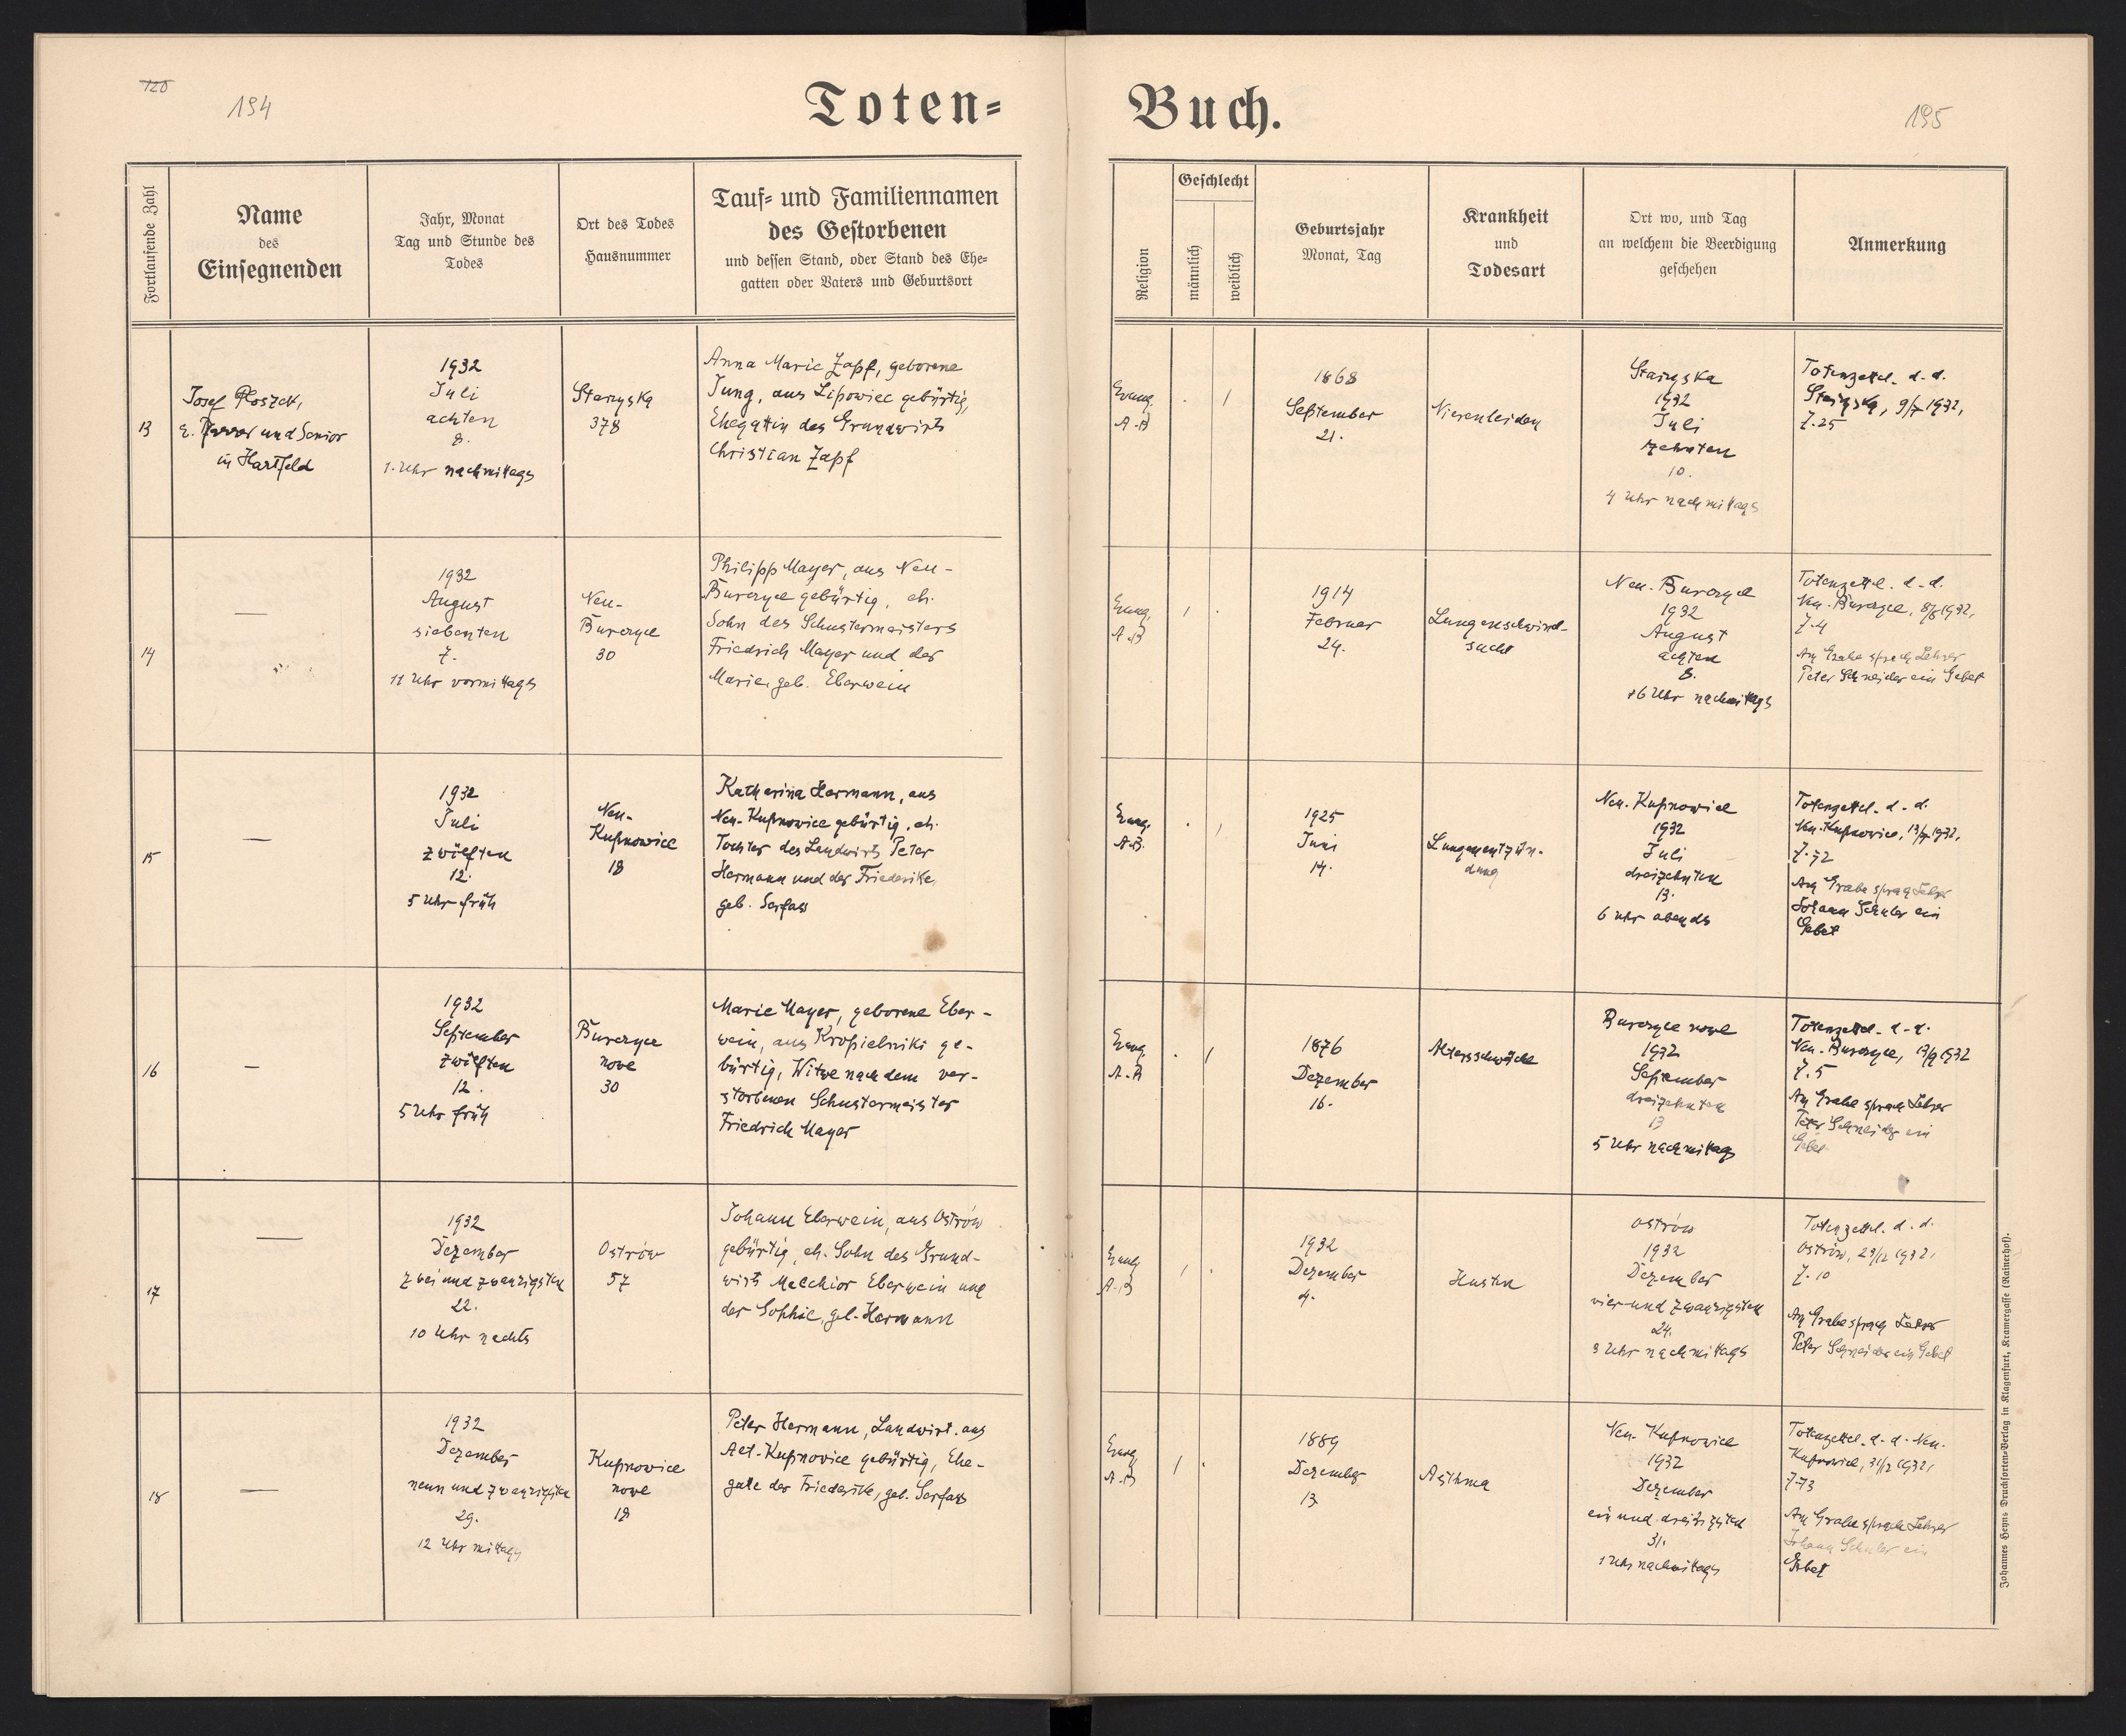 120
194
Toten-
Buch.
195
Fortlaufende Zahl
Name
des
Einsegnenden
Jahr, Monat
Tag und Stunde des
Todes
Ort des Todes
Hausnummer
Tauf- und Familiennamen
des Gestorbenen
und dessen Stand, oder Stand des Ehe-
gatten oder Vaters und Geburtsort
Religion
Geschlecht
männlich
weiblich
Geburtsjahr
Monat, Tag
Krankheit
und
Todesart
Ort wo, und Tag
an welchem die Beerdigung
geschehen
Anmerkung
13
Josef Ploszek,
e. Pfarrer und Senior
in Hartfeld
1932
Juli
achten
8.
1. Uhr nachmittags
Starzyska
378
Anna Marie Zapf, geborene
Jung, aus Lipowiec gebürtig,
Ehegattin des Grundwirts
Christian Zapf
Evang.
A. B
. /
1868
September
21.
Nierenleiden
Starzyska
1932
Juli
zehnten
10.
4 Uhr nachmittags
Totenzettel. d. d.
Starzyska, 9/7 1932,
Z. 25
14
—
1932
August
siebenten
7.
11 Uhr vormittags
Neu-
Burczyce
30
Philipp Mayer, aus Neu-
Burczyce gebürtig, eh.
Sohn des Schustermeisters
Friedrich Mayer und der
Marie, geb. Eberwein
Evang.
A. B
/ .
1914
Februar
24.
Lungenschwind-
sucht
Neu-Burczyce
1932
August
achten
8.
6 Uhr nachmittags
Totenzettel. d. d.
Neu-Burczyce, 8/8 1932,
Z. 4
Am Grabe sprach Lehrer
Peter Schneider ein Gebet
15
—
1932
Juli
zwölften
12.
5 Uhr früh
Neu-
Kupnowice
18
Katharina Hermann, aus
Neu-Kupnowice gebürtig, eh.
Tochter des Landwirts Peter
Hermann und der Friederike,
geb. Serfass
Evang.
A. B.
. /
1925
Juni
14.
Lungenentzün-
dung
Neu-Kupnowice
1932
Juli
dreizehnten
13.
6 Uhr abends
Totenzettel. d. d.
Neu-Kupnowice, 13/7 1932,
Z. 72
Am Grabe sprach Lehrer
Johann Schuler ein
Gebet
16
—
1932
September
zwölften
12.
5 Uhr früh
Burczyce
nowe
30
Marie Mayer, geborene Eber-
wein, aus Kropielniki ge-
bürtig, Witwe nach dem ver-
storbenen Schustermeister
Friedrich Mayer
Evang.
A. B
. /
1876
Dezember
16.
Altersschwäche
Burczyce nowe
1932
September
dreizehnten
13
5 Uhr nachmittags
Totenzettel. d. d.
Neu-Burczyce, 13/9 1932
Z. 5
Am Grabe sprach Lehrer
Peter Schneider ein
Gebet
17
—
1932
Dezember
zwei und zwanzigsten
22.
10 Uhr nachts
Ostrów
57
Johann Eberwein, aus Ostrów
gebürtig, eh. Sohn des Grund-
wirts Melchior Eberwein und
der Sophie, geb. Hermann
Evang
A. B
/ .
1932
Dezember
4.
Husten
Ostrów
1932
Dezember
vier und zwanzigsten
24.
3 Uhr nachmittags
Totenzettel. d. d.
Ostrów, 23/12 1932,
Z. 10
Am Grabe sprach Lehrer
Peter Schneider ein Gebet
18
—
1932
Dezember
neun und zwanzigsten
29.
12 Uhr mittags
Kupnowice
nowe
18
Peter Hermann, Landwirt. aus
Alt-Kupnovice gebürtig, Ehe-
gatte der Friederike, geb. Serfass
Evang
A. B
/ .
1889
Dezember
13.
Asthma
Neu-Kupnowice
1932
Dezember
ein und dreißigsten
31.
1 Uhr nachmittags
Totenzettel. d. d. Neu-
Kupnowice, 31/12 1932,
Z. 73
Am Grabe sprach Lehrer
Johann Schuler ein
Gebet
Johannes Heyns Drucksorten-Verlag in Klagenfurt, Kramergasse (Rainerhof).